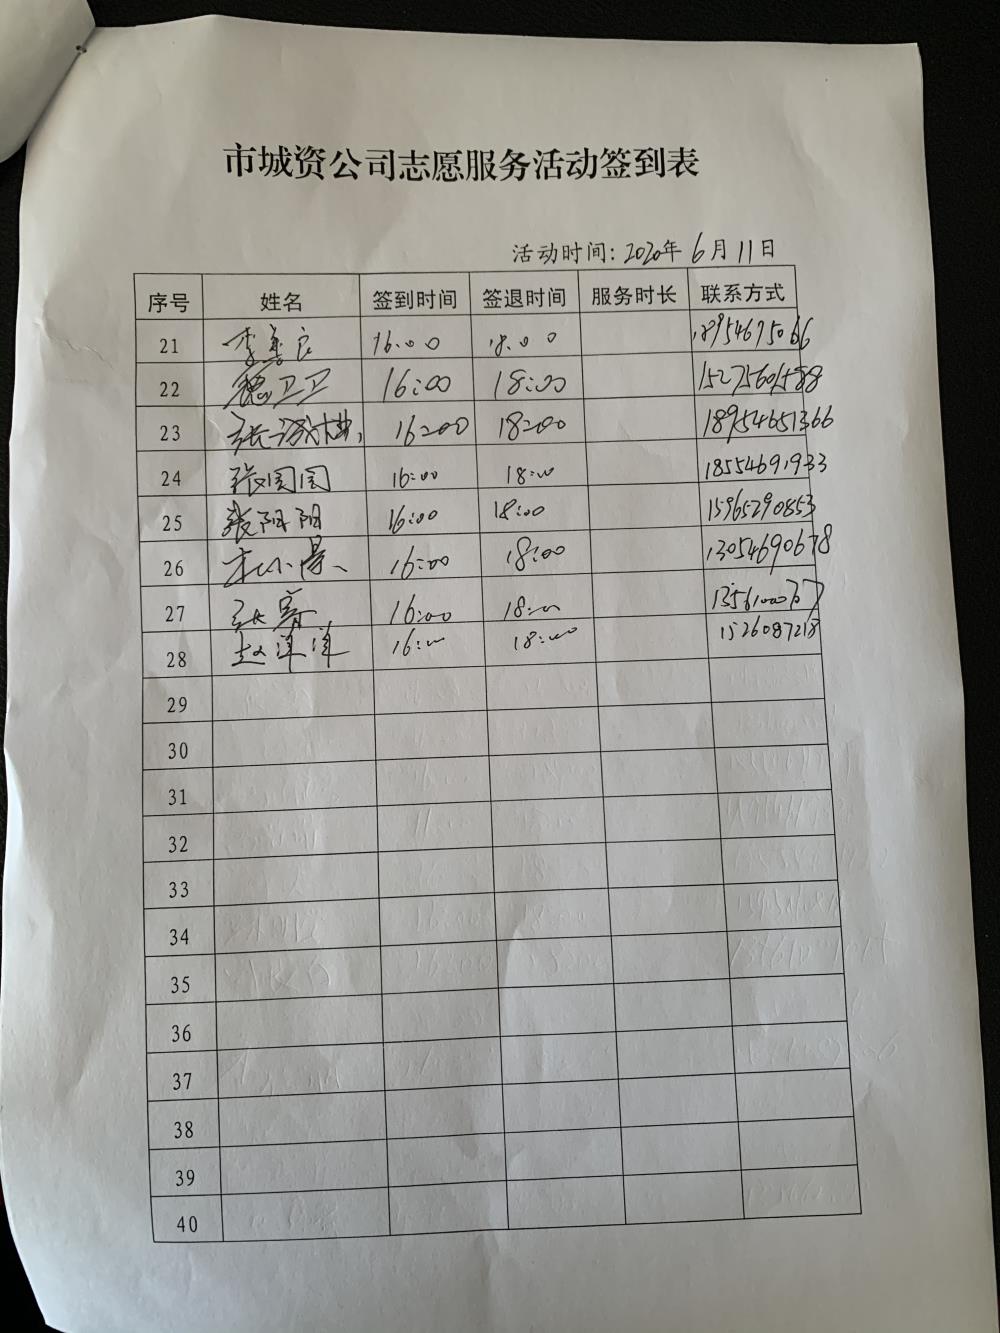 市城资公司志愿服务活动签到表
活动时间: 2020年 6月 11日
序号 姓名 签到时间 签退时间 服务时长 联系方式
21 李善良 16:00 18:00 18954675066
22 16:00 18:00 15275601588
23 16:00 18:00 18954651366
24 张园园 16:00 18:00 18554691933
25 张阳阳 16:00 18:00 15965290853
26 16:00 18:00 13054690678
27 16:00 18:00
28 赵洋洋 16:00 18:00 1526087218
29
30
31
32
33
34
35
36
37
38
39
40